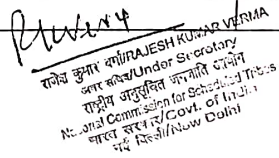 राजेश कुमार वर्मा/RAJESH KUMAR VERMA
अवर सचिव/Under Secretary
राष्ट्रीय अनुसूचित जनजाति आयोग
National Commission for Scheduled Tribes
भारत सरकार/Govt. of India
नई दिल्ली/New Delhi